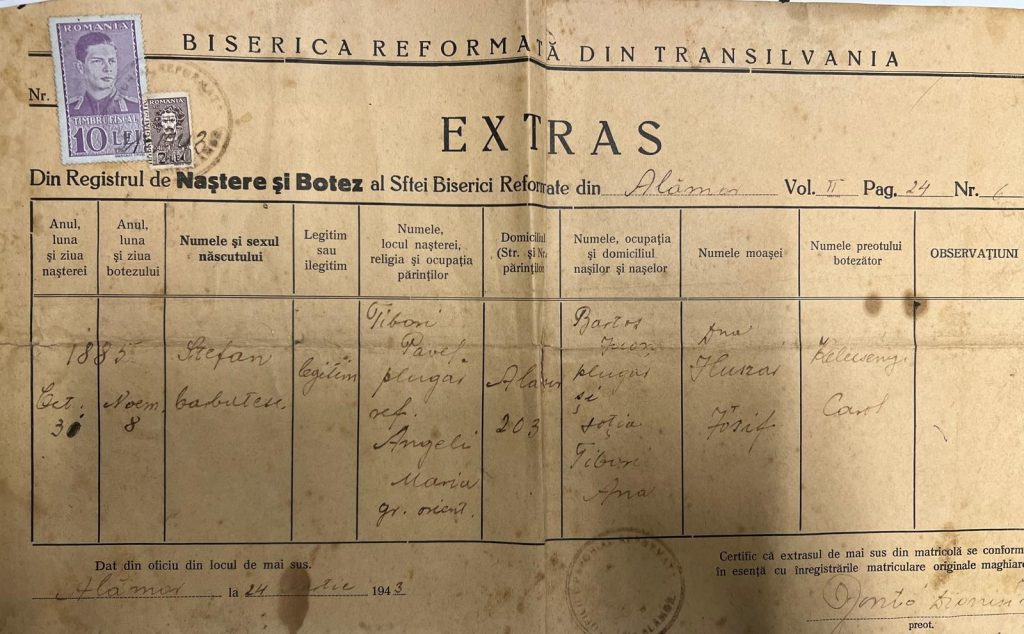 ROMANIA
TIMBRU FISCAL
10 LEI
ROMANIA
2 LEI
BISERICA REFORMATĂ DIN TRANSILVANIA
Nr.
EXTRAS
Din Registrul de Naștere și Botez al Sftei Biserici Reformate din Alămor Vol. II Pag. 24 Nr. 6
Anul, luna și ziua nașterei
Anul, luna și ziua botezului
Numele și sexul născutului
Legitim sau ilegitim
Numele, locul nașterei, religia și ocupația părinților
Domiciliul (Str. și Nr. părinților
Numele, ocupația și domiciliul nașilor și nașelor
Numele moașei
Numele preotului botezător
OBSERVAȚIUNI
1885
Oct.
30
Noem.
8
Ștefan
barbatesc.
legitim
Tibori
Pavel
plugar
ref.
Angeli
Maria
gr. orient.
Alămor
203
Bartos
plugar
și
soția
Tibori
Ana
Ana
Huszar
Iósif
Carol
Dat din oficiu din locul de mai sus.
Alămor la 24 1943
Certific că extrasul de mai sus din matricolă se conform
în esență cu înregistrările matriculare originale maghiare
preot.